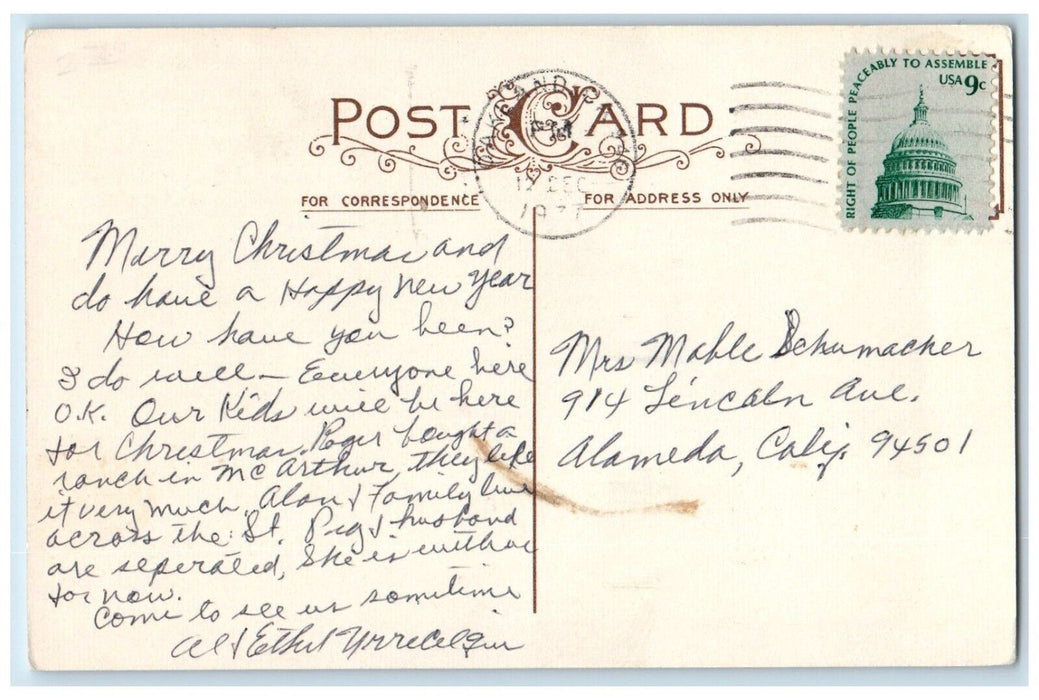 POST CARD
FOR CORRESPONDENCE
FOR ADDRESS ONLY
PM
12 DEC
1977
RIGHT OF PEOPLE PEACEABLY TO ASSEMBLE
USA 9c
Merry Christmas and
do have a Happy New Year
How have you been?
I do well — Everyone here
O.K. Our Kids will be here
for Christmas. Roger bought a
ranch in McArthur, they like
it very much. Alan & Family live
across the St. Peg & husband
are seperated, She is with us
for now.
Come to see us sometime
Al & Ethel
Mrs Mable Schumacher
914 Lincoln Ave.
Alameda, Calif. 94501